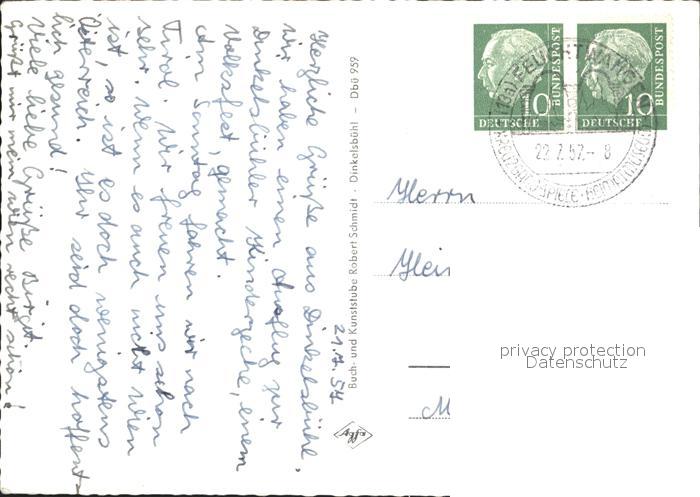 21.7.57
Herzliche Grüße aus Dinkelsbühl.
Wir haben einen Ausflug zur
Dinkelsbühler Kinderzeche, einem
Volksfest, gemacht.
Am Sonntag fahren wir nach
Tirol. Wir freuen uns schon
sehr. Wenn es auch nicht Wien
ist, so ist es doch wenigstens
Österreich. Ihr seid doch hoffent-
lich gesund!
Viele liebe Grüße Birgit.
Grüßt mir
recht schön!
Buch- und Kunststube Robert Schmidt · Dinkelsbühl – Dbü 959
Agfa
10
DEUTSCHE
BUNDESPOST
10
DEUTSCHE
BUNDESPOST
FEUCHTWANGEN
22.7.57.- 8
KREUZGANGSPIELE
Herrn
Hein
M
privacy protection
Datenschutz